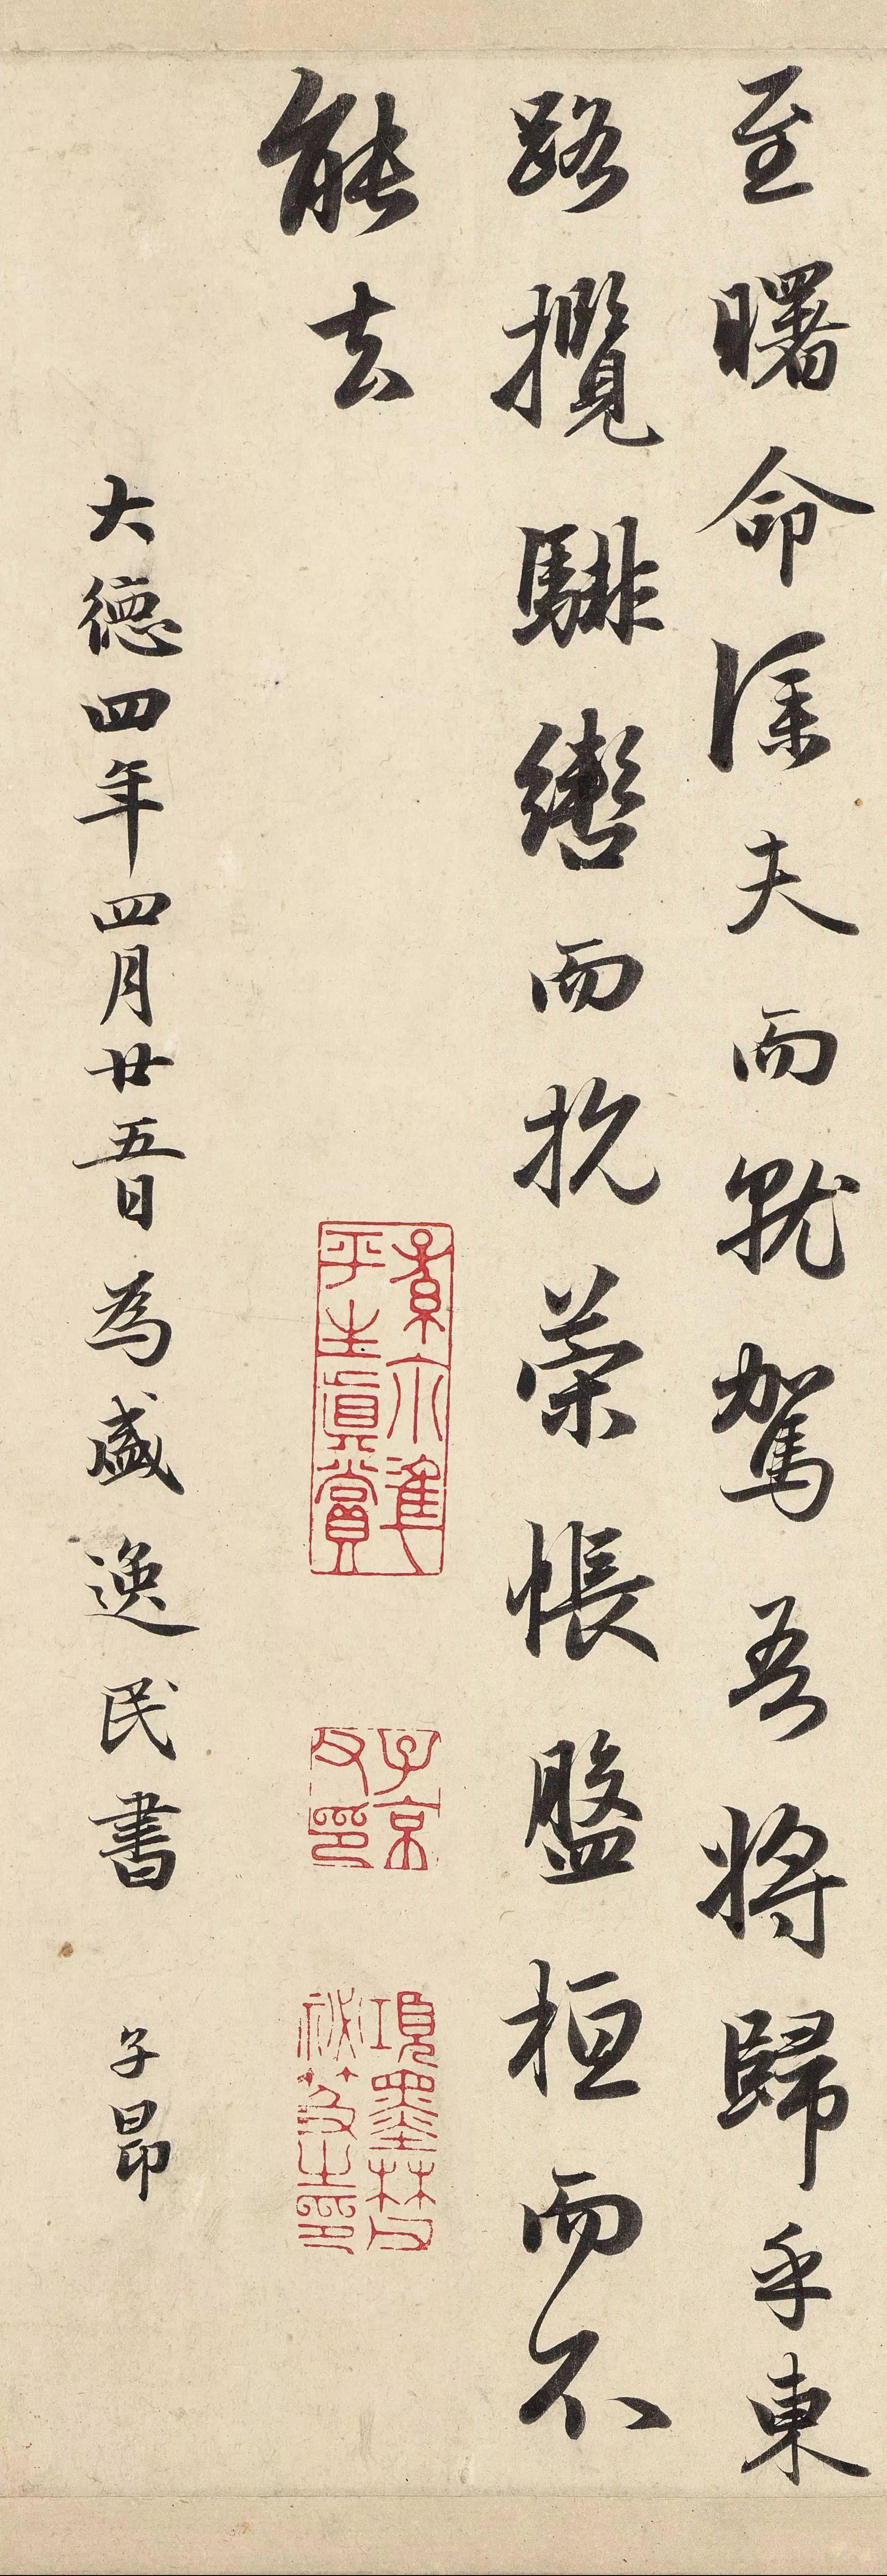 至曙命僕夫而就駕吾將歸乎東
路攬騑轡而抗策悵盤桓而不
能去
平生真賞
子京
父印
項墨林父
祕笈之印
大德四年四月廿五日為盛逸民書 子昂